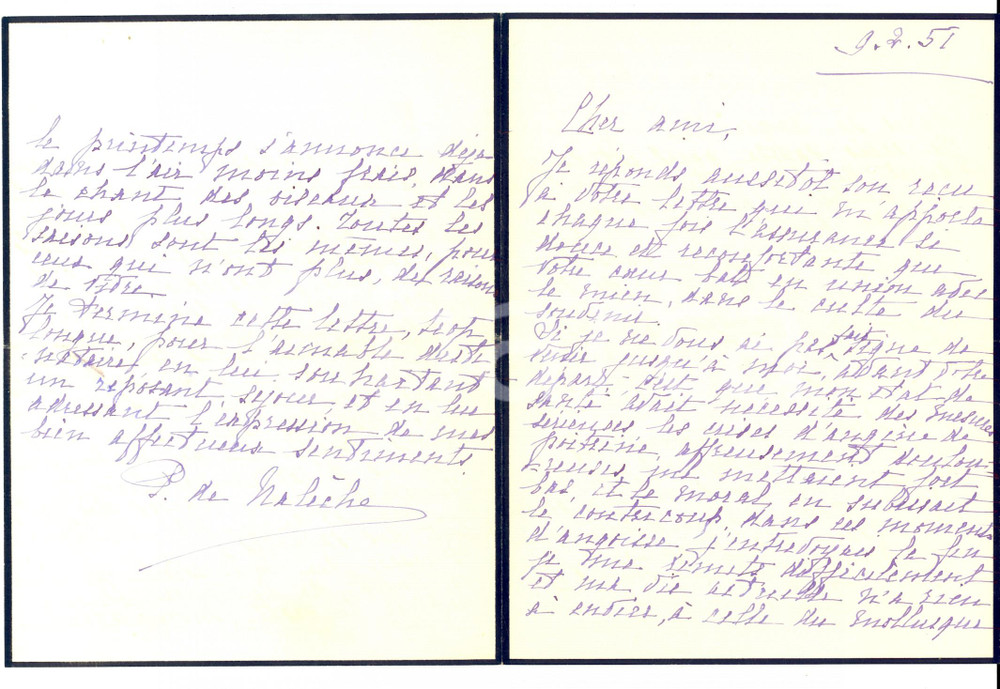 9.2.51
Cher ami,
Je réponds aussitôt son reçu
à votre lettre qui m'apporte
chaque fois l'assurance si
douce et réconfortante que
votre cœur bat en union avec
le mien, dans le culte du
souvenir.
Si je ne vous ai pas fait signe de
venir jusqu'à moi, avant votre
départ, c'est que mon état de
santé avait nécessité des mesures
sérieuses, les crises d'angine de
poitrine, affreusement doulou-
reuses, me mettaient fort
bas, et le moral, en subissait
le contrecoup, dans ces moments
d'angoisse j'entrevoyais la fin
je me remets difficilement
et ma vie actuelle n'a rien
à envier, à celle du mollusque
le printemps s'annonce déjà
dans l'air moins frais, dans
le chant des oiseaux et les
jours plus longs. Toutes les
saisons sont les mêmes, pour
ceux qui n'ont plus, de raison
de vivre.
Je termine cette lettre, trop
longue, pour l'aimable desti
nataire, en lui souhaitant
un reposant séjour, et en lui
adressant l'expression de mes
bien affectueux sentiments.
P. de Nalèche